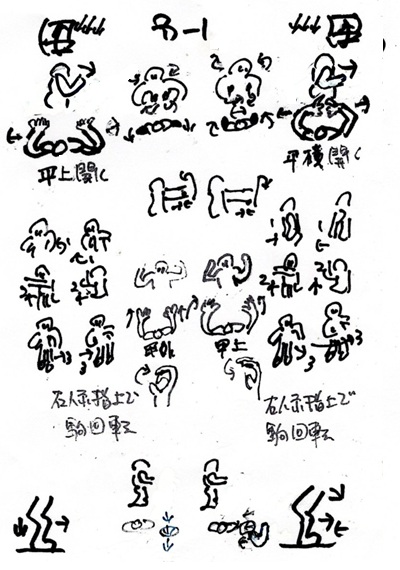 8-1
平上開く
平横開く
甲外
甲上
右人示指上で
駒回転
右人示指上で
駒回転